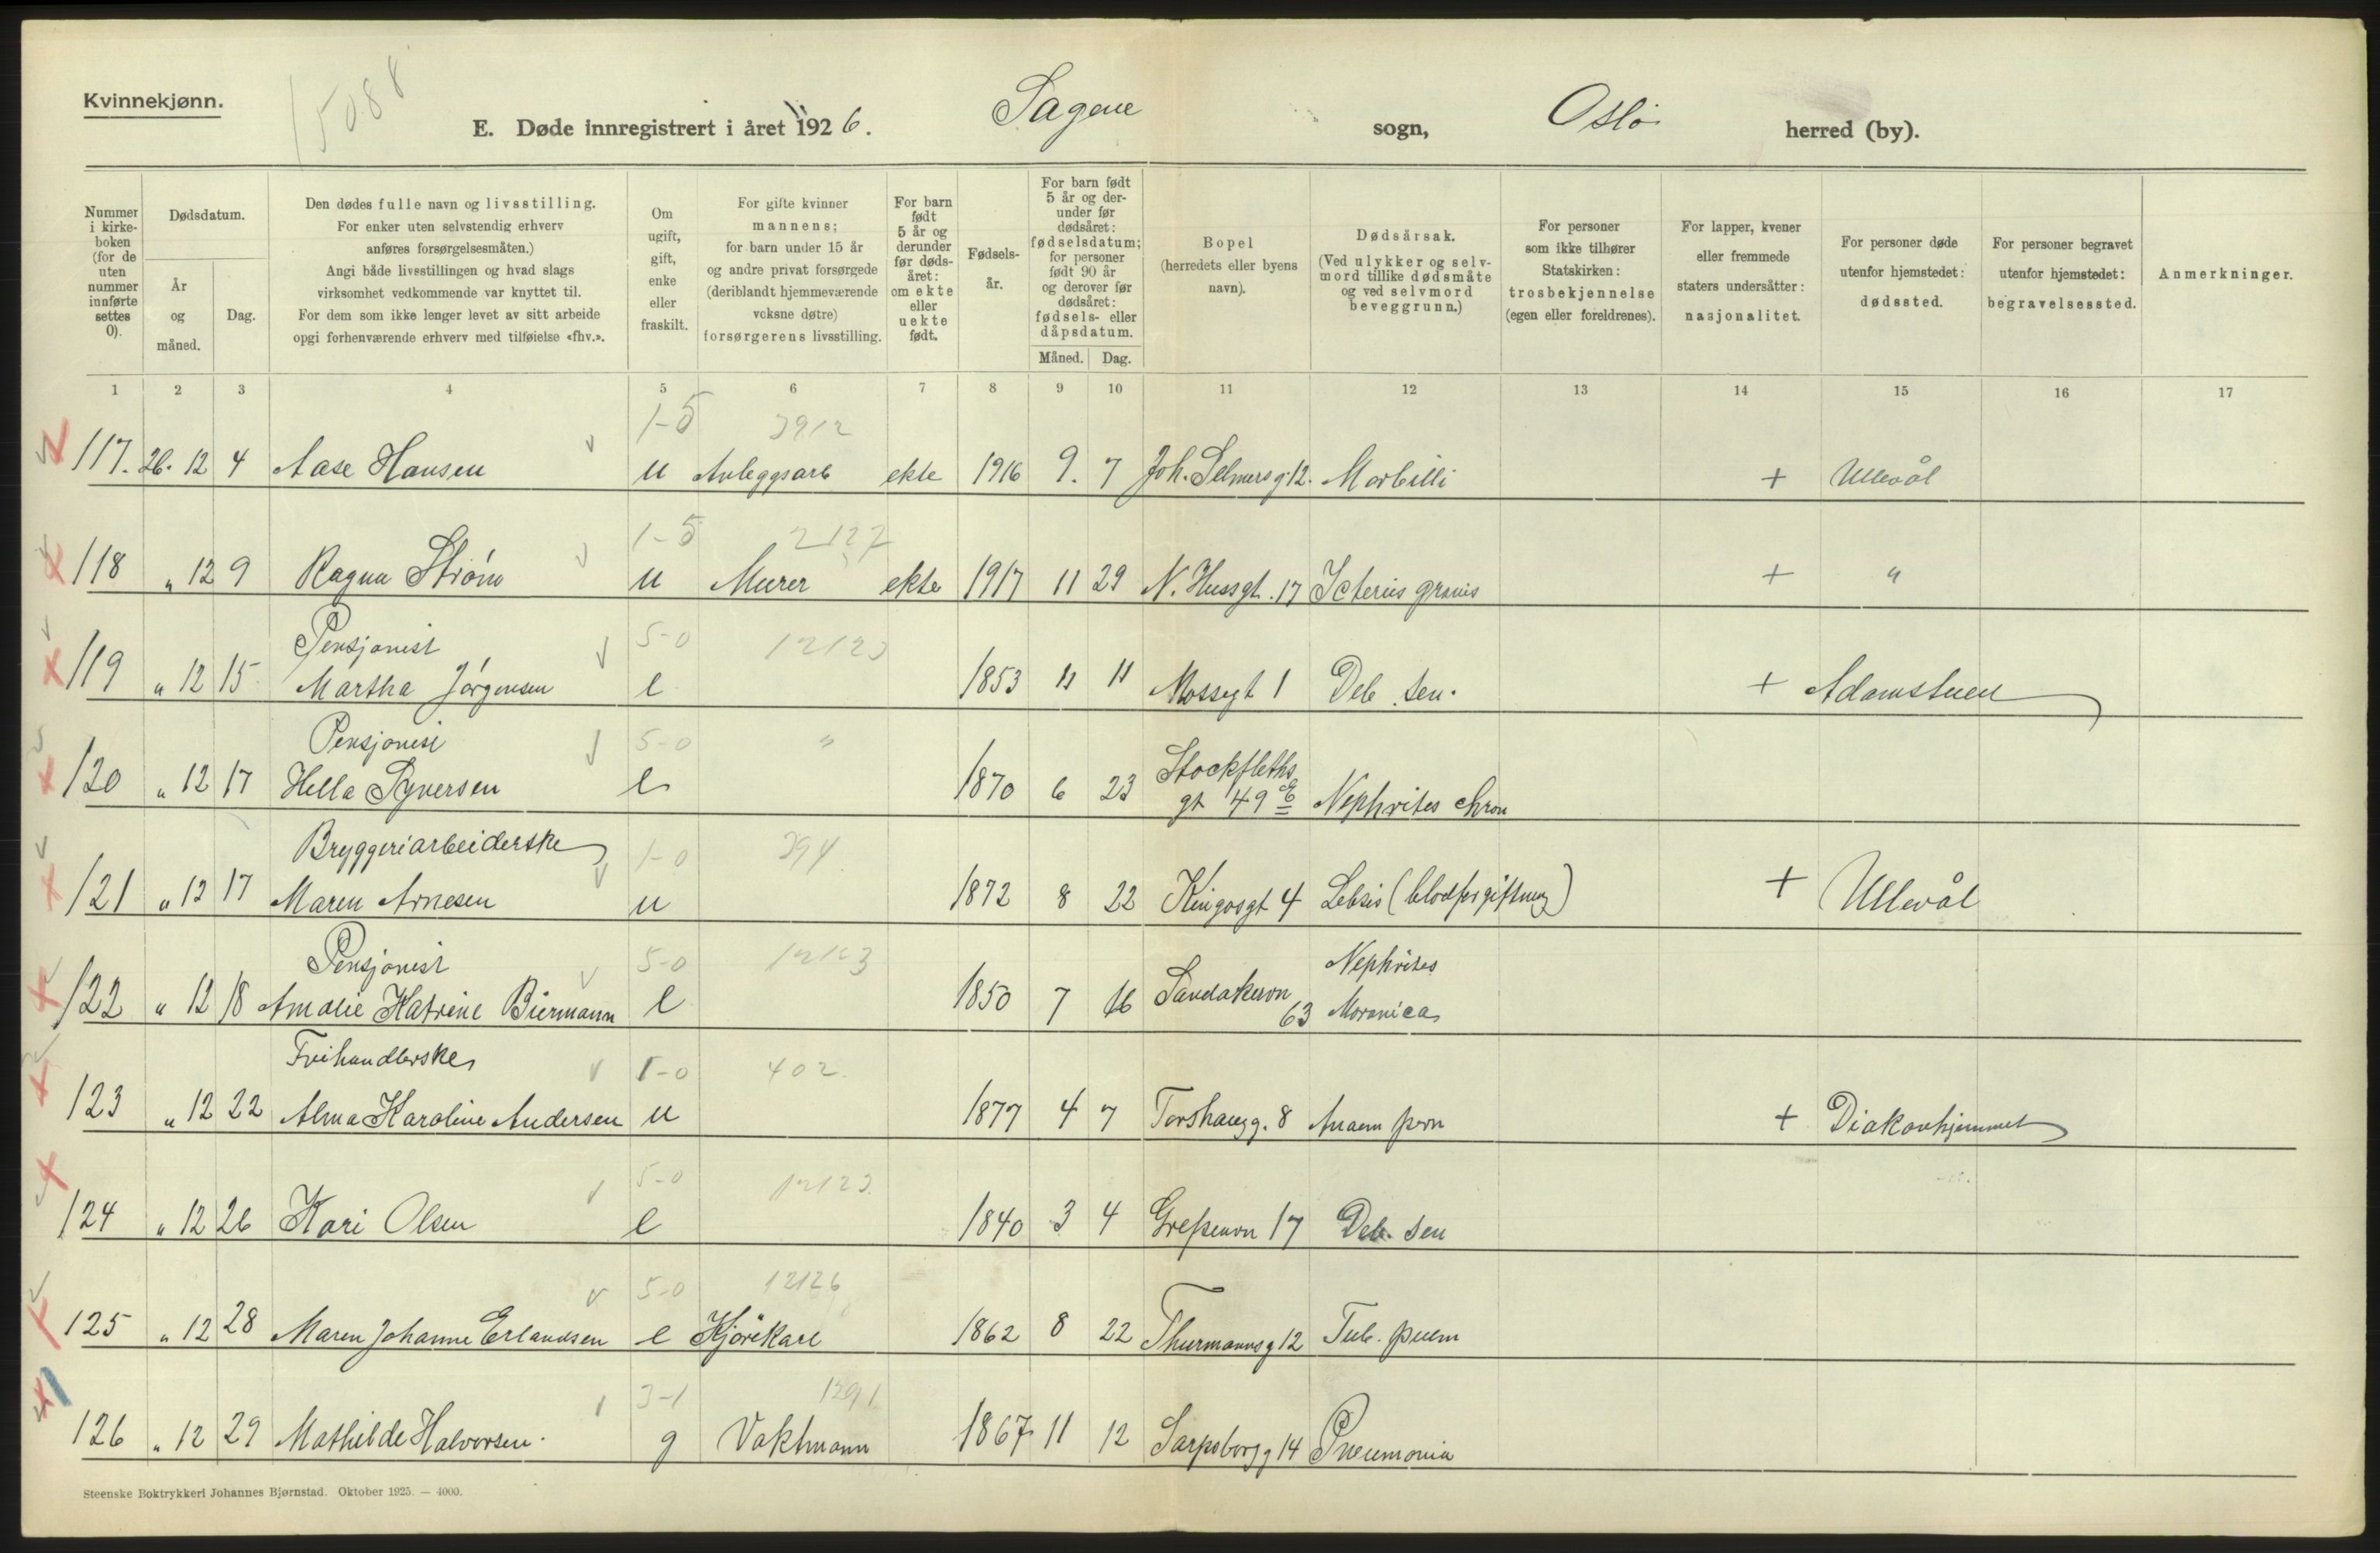 Kvinnekjønn.
15088
E. Døde innregistrert i året 1926. Sagene sogn, Oslo herred (by).
Nummer i kirkeboken (for de uten nummer innførte settes 0).
Dødsdatum.
År og måned.
Dag.
Den dødes fulle navn og livsstilling.
For enker uten selvstendig erhverv
anføres forsørgelsesmåten.)
Angi både livsstillingen og hvad slags
virksomhet vedkommende var knyttet til.
For dem som ikke lenger levet av sitt arbeide
opgi forhenværende erhverv med tilføielse «fhv.».
Om ugift, gift, enke eller fraskilt.
For gifte kvinner
mannens;
for barn under 15 år
og andre privat forsørgede
(deriblandt hjemmeværende
voksne døtre)
forsørgerens livsstilling.
For barn født 5 år og derunder før dødsåret: om ekte eller uekte født.
Fødselsår.
For barn født 5 år og derunder før dødsåret: fødselsdatum; for personer født 90 år og derover før dødsåret: fødsels- eller dåpsdatum.
Måned. Dag.
Bopel
(herredets eller byens
navn).
Dødsårsak.
(Ved ulykker og selvmord tillike dødsmåte og ved selvmord beveggrunn.)
For personer
som ikke tilhører
Statskirken:
trosbekjennelse
(egen eller foreldrenes).
For lapper, kvener
eller fremmede
staters undersåtter:
nasjonalitet.
For personer døde
utenfor hjemstedet:
dødssted.
For personer begravet
utenfor hjemstedet:
begravelsessted.
Anmerkninger.
1 2 3 4 5 6 7 8 9 10 11 12 13 14 15 16 17
1-5 3912
117. 26. 12 4 Aase Hansen u Anleggsarb ekte 1916 9. 7 Joh. Selmersg 12. Morbilli + Ullevål
1-5 2127
118 " 12 9 Ragna Strøm u Murer ekte 1917 11 29 N. Hussgt. 17 Icterus gravis + "
Pensjonist 5-0 12123
119 " 12 15 Martha Jörgensen e 1853 12 11 Mossegt 1 Deb. sen. + Adamstuen
Pensjonist 5-0 "
120 " 12 17 Hella Syversen e 1870 6 23 Stockfleths
gt 49 E Nephrites chron
Bryggeriarbeiderske 1-0 394
121 " 12 17 Maren Arnesen u 1872 8 22 Kingosgt 4 Sebsis (blodforgiftning) + Ullevål
Pensjonist 5-0 12123 Nephrites
122 " 12 18 Amalie Katrine Biermann e 1850 7 16 Sandakervn 63
Frihandlerske 1-0 402.
123 " 12 22 Alma Karoline Andersen u 1877 4 7 Torshaugg. 8 Anaem pern + Diakonhjemmet
5-0 12123.
124 " 12 26 Kari Olsen e 1840 3 4 Grefsenvn 17 Deb. sen
5-0 12126
125 " 12 28 Maren Johanne Erlandsen e Kjörekarl 1862 8 22 Thurmannsg 12 Tub. pulm
3-1 1291
126 " 12 29 Mathilde Halvorsen. g Vaktmann 1867 11 12 Sarpsborgg 14 Pneumonia
Steenske Boktrykkeri Johannes Bjørnstad. Oktober 1925. — 4000.